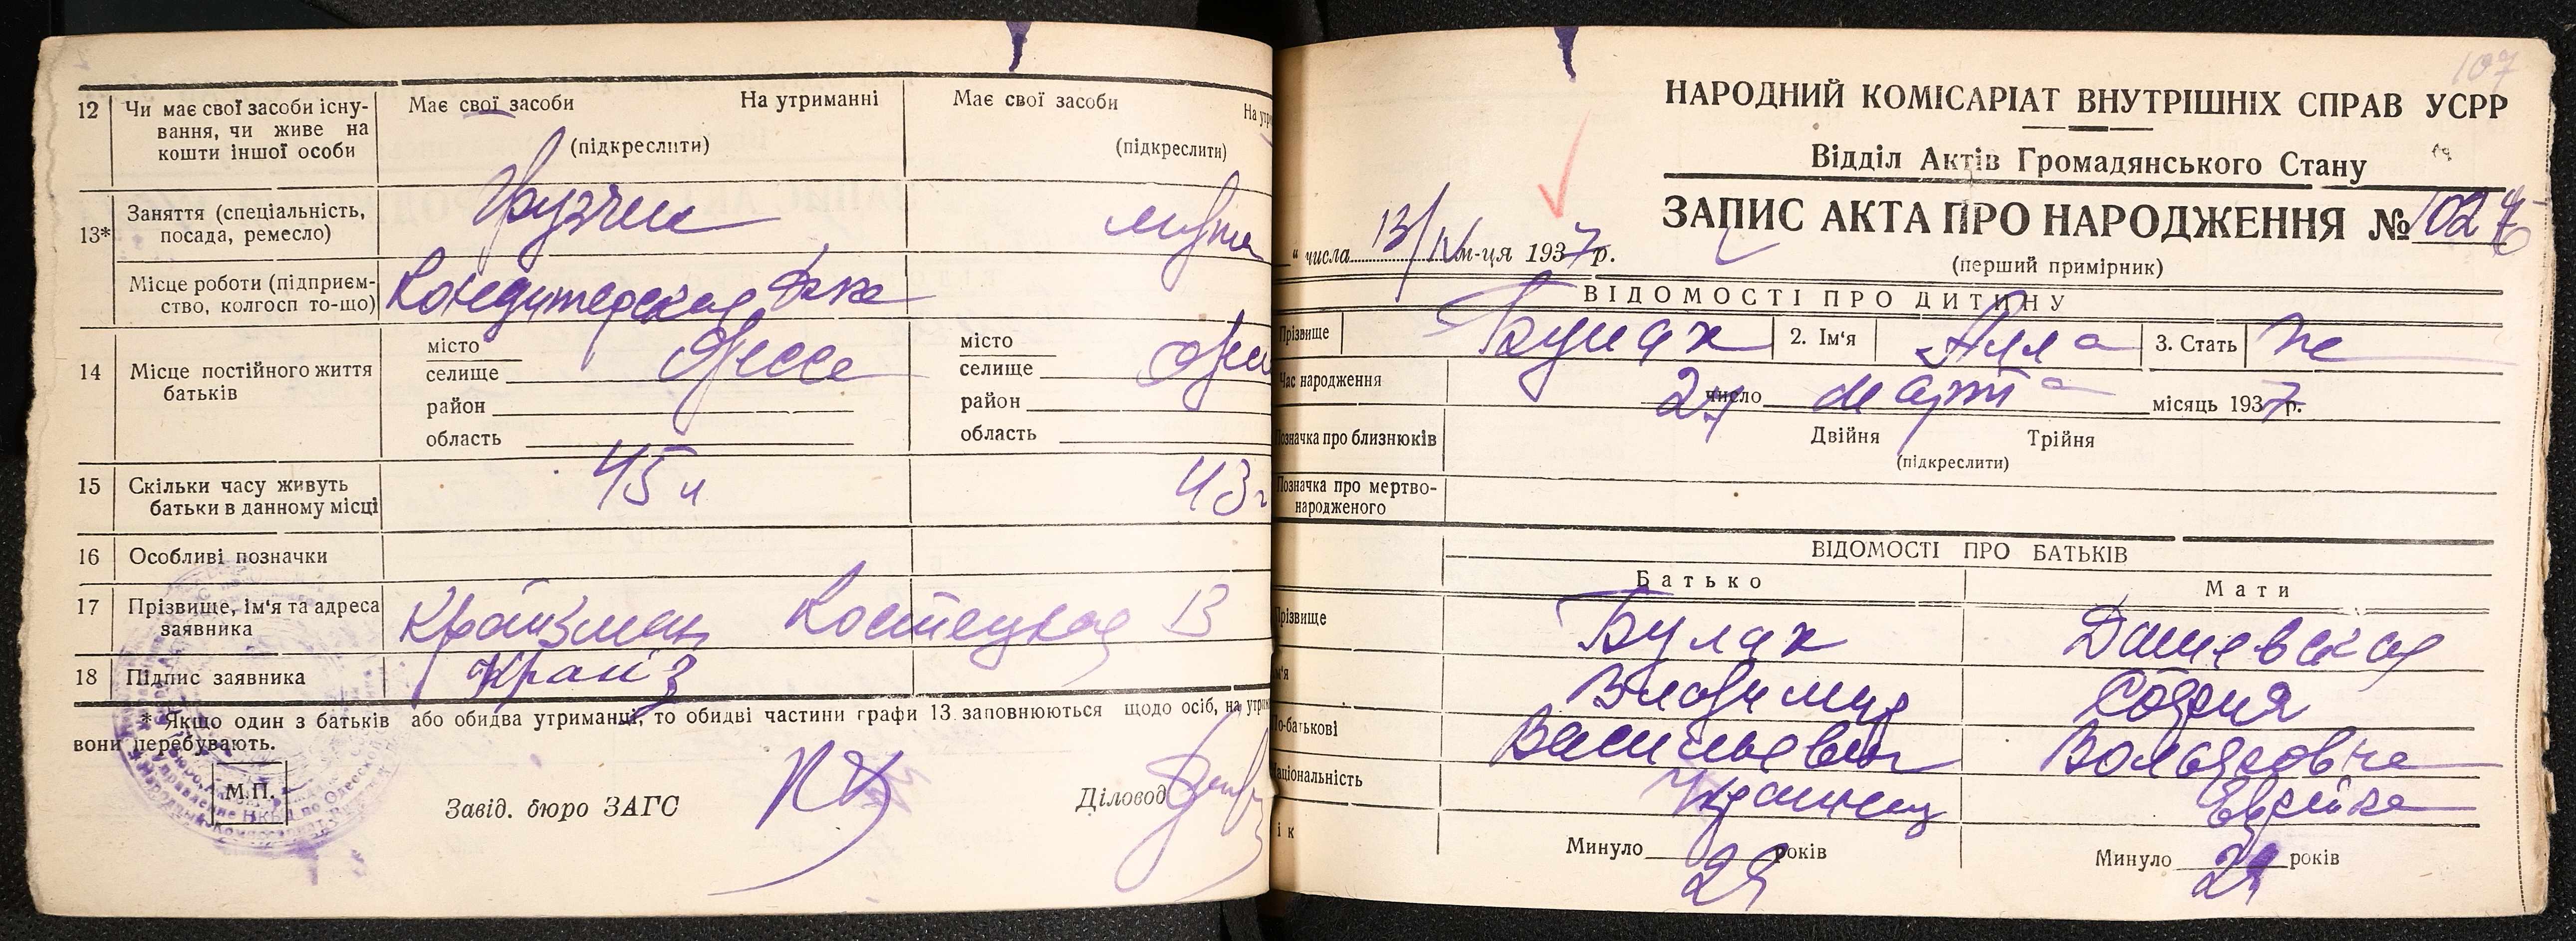 12 Чи має свої засоби існу-
вання, чи живе на
кошти іншої особи
Має свої засоби На утриманні
(підкреслити)
Має свої засоби
(підкреслити)
13* Заняття (спеціальність,
посада, ремесло)
Грузчик
Місце роботи (підприєм-
ство, колгосп то-що)
Кондитерская ф-ка
14 Місце постійного життя
батьків
місто Одесса
селище
район
область
місто
селище
район
область
15 Скільки часу живуть
батьки в данному місці
16 Особливі позначки
17 Прізвище, ім'я та адреса
заявника
Крайзман Костецкая 13
18 Підпис заявника
Крайз
* Якщо один з батьків або обидва утриманці, то обидві частини графи 13 заповнюються щодо осіб, на
вони перебувають.
М.П.
Завід. бюро ЗАГС Діловод
107
НАРОДНИЙ КОМІСАРІАТ ВНУТРІШНІХ СПРАВ УСРР
Відділ Актів Громадянського Стану
ЗАПИС АКТА ПРО НАРОДЖЕННЯ №
" числа 13/IV м-ця 1937 р.
(перший примірник)
ВІДОМОСТІ ПРО ДИТИНУ
Прізвище Булах 2. Ім'я Алла 3. Стать ж
Час народження
число марта місяць 1937 р.
Позначка про близнюків Двійня Трійня
(підкреслити)
Позначка про мертво-
народженого
ВІДОМОСТІ ПРО БАТЬКІВ
Батько Мати
Прізвище Булах Дашевская
м'я Владимир София
По-батькові Васильевич Вольфовна
Національність Украинец Еврейка
ік Минуло 29 років Минуло років